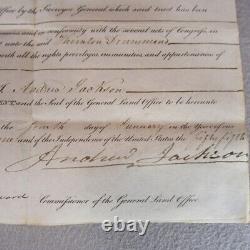 Office by the Surveyor General which said tract has been
and in conformity with the several acts of Congress, in
unto the said Thornton Grammens
with all the rights privileges immunities and appurtenances of
I, Andrew Jackson
and the Seal of the General Land Office to be hereunto
the fourth day of January in the year of our
one and of the Independence of the United States the fifty fifth
Andrew Jackson
Commissioner of the General Land Office.